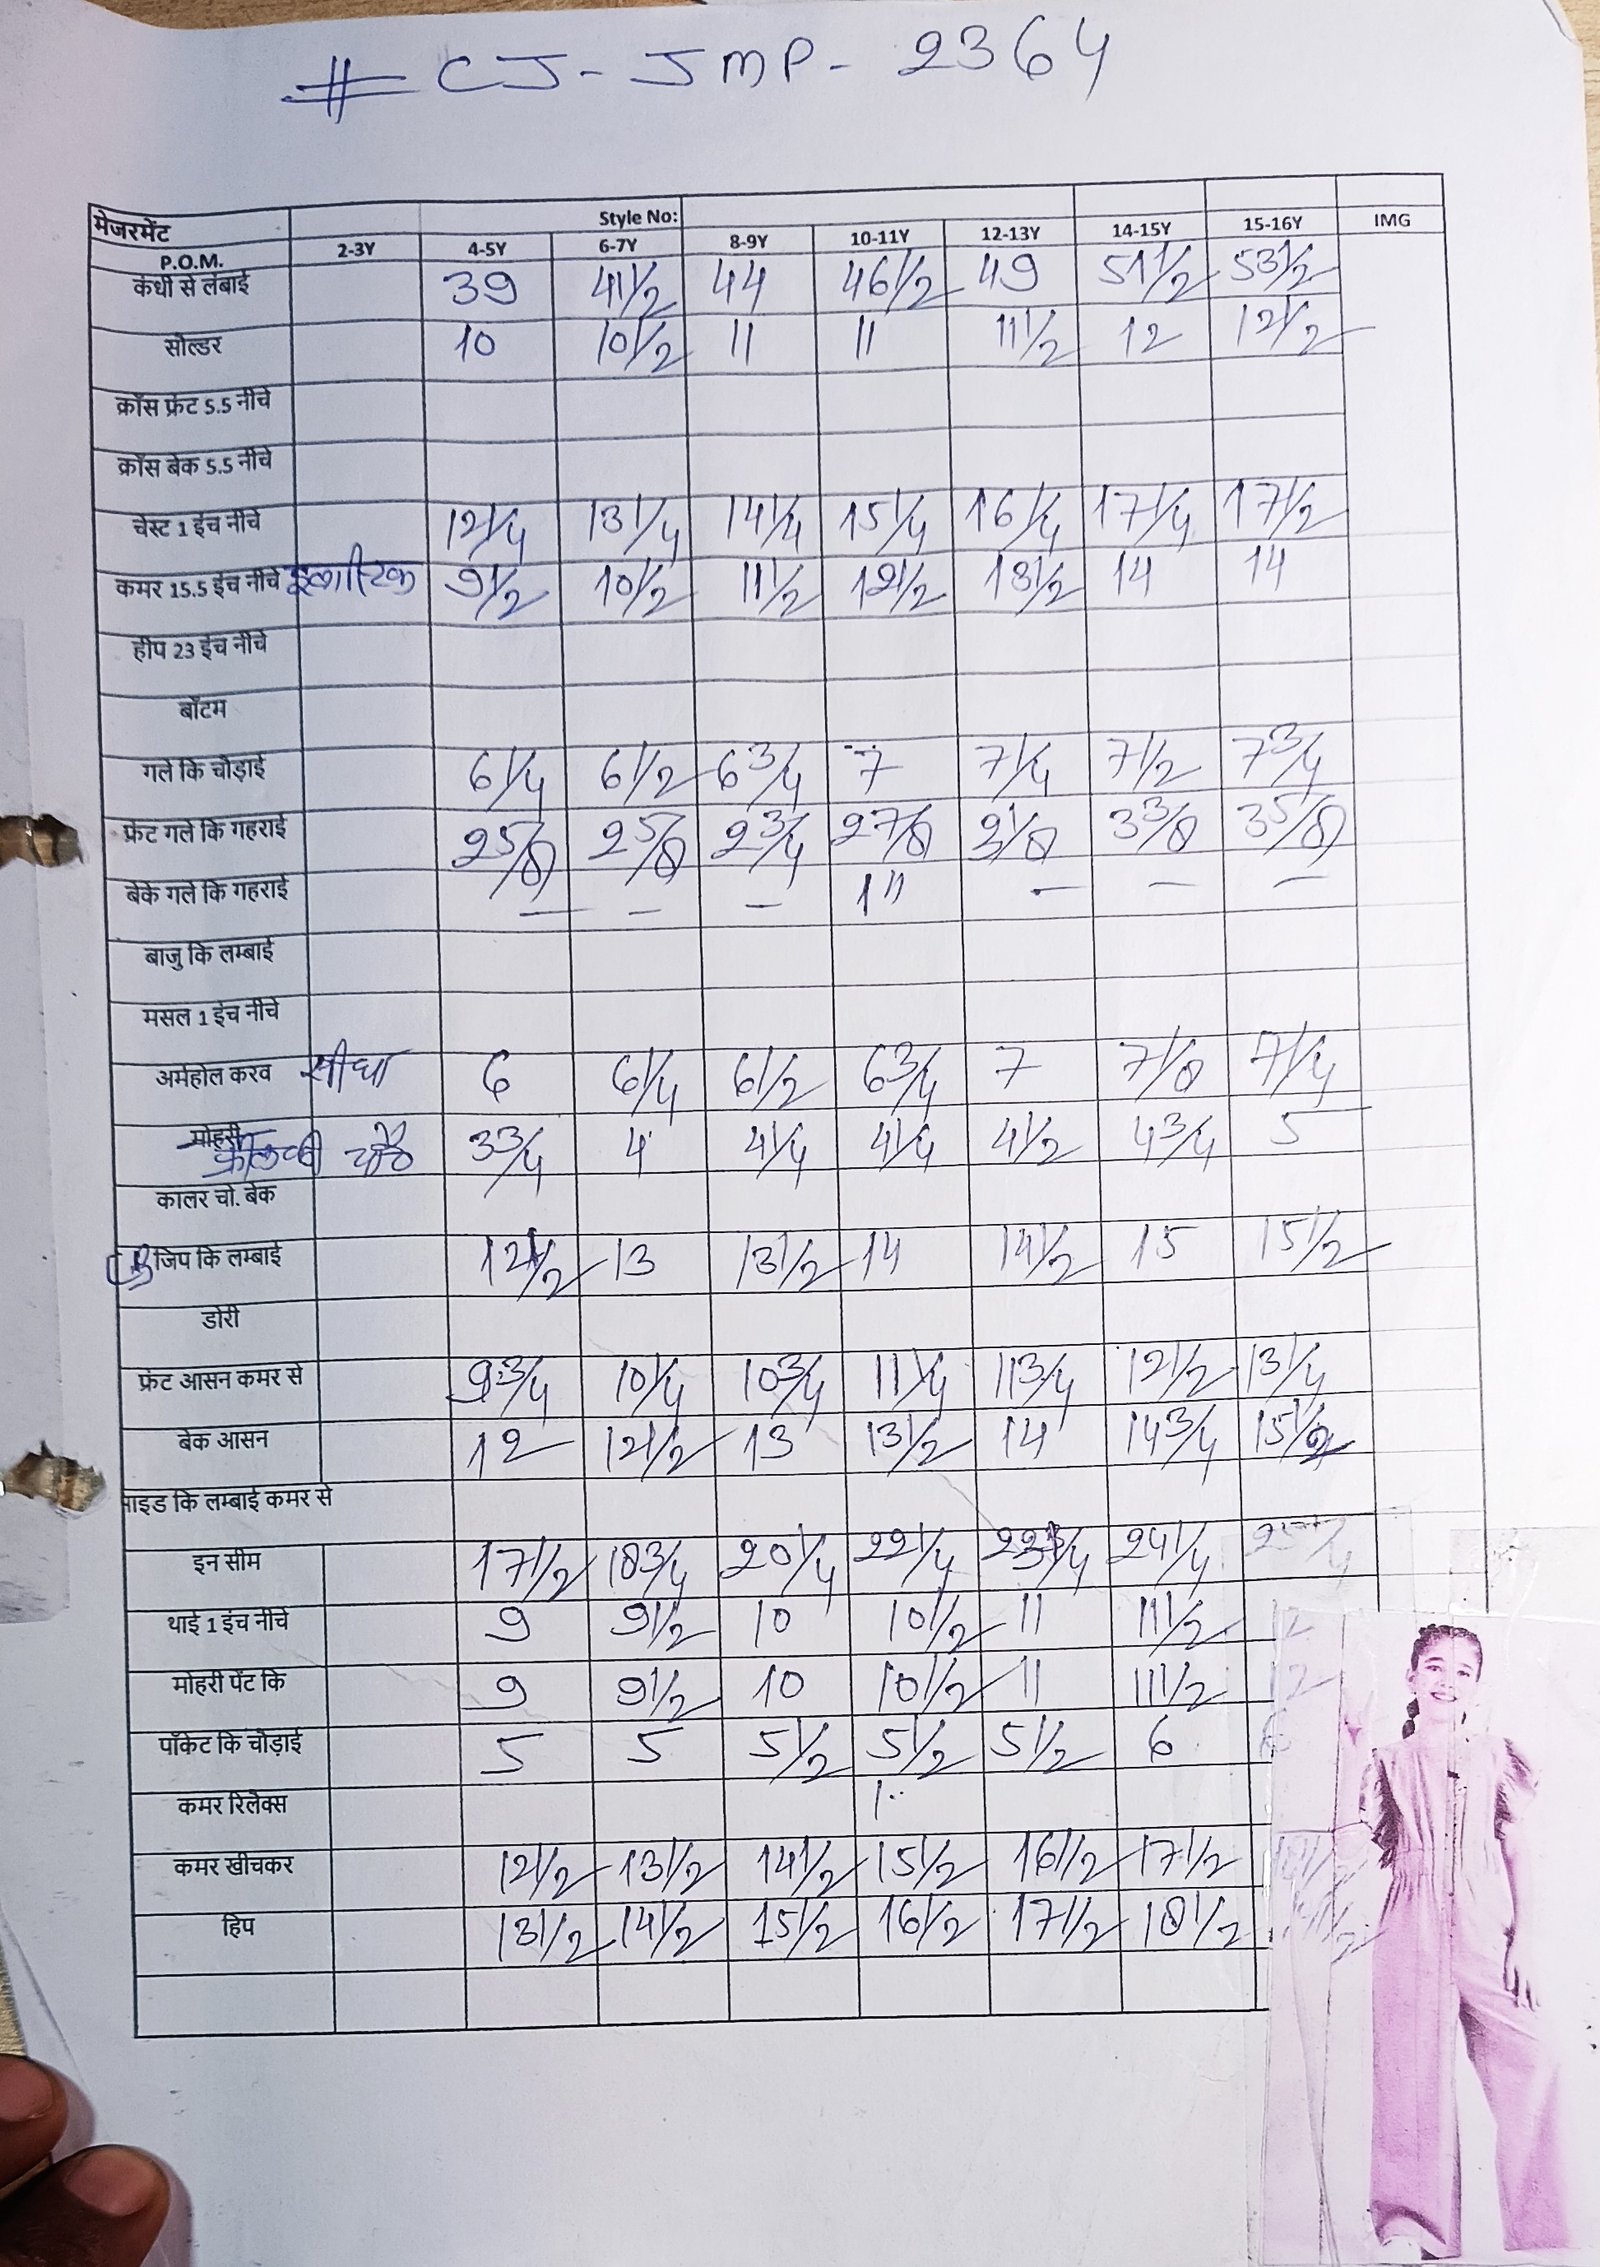 # CJ - JMP - 2364
मेजरमेंट Style No:
P.O.M. 2-3Y 4-5Y 6-7Y 8-9Y 10-11Y 12-13Y 14-15Y 15-16Y IMG
कंधी से लंबाई 39 41 1/2 44 46 1/2 49 51 1/2 53 1/2
सोल्डर 10 10 1/2 11 11 11 1/2 12 12 1/2
क्रॉस फ्रंट 5.5 नीचे
क्रॉस बेक 5.5 नीचे
चेस्ट 1 इंच नीचे 12 1/4 13 1/4 14 1/4 15 1/4 16 1/4 17 1/4 17 1/2
कमर 15.5 इंच नीचे इलास्टिक 9 1/2 10 1/2 11 1/2 12 1/2 13 1/2 14 14
हीप 23 इंच नीचे
बॉटम
गले कि चोड़ाई 6 1/4 6 1/2 6 3/4 7 7 1/4 7 1/2 7 3/4
फ्रंट गले कि गहराई 2 5/8 2 5/8 2 3/4 2 7/8 3 1/8 3 3/8 3 5/8
बेके गले कि गहराई — — — 1" — — —
बाजु कि लम्बाई
मसल 1 इंच नीचे
अर्महोल करव सीधा 6 6 1/4 6 1/2 6 3/4 7 7 1/8 7 1/4
मोहरी 3 3/4 4 4 1/4 4 1/4 4 1/2 4 3/4 5
कालर चो. बेक
जिप कि लम्बाई 12 1/2 13 13 1/2 14 14 1/2 15 15 1/2
डोरी
फ्रंट आसन कमर से 9 3/4 10 1/4 10 3/4 11 1/4 11 3/4 12 1/2 13 1/4
बेक आसन 12 12 1/2 13 13 1/2 14 14 3/4 15 1/2
साइड कि लम्बाई कमर से
इन सीम 17 1/2 18 3/4 20 1/4 22 1/4 24 1/4
थाई 1 इंच नीचे 9 9 1/2 10 10 1/2 11 11 1/2 12
मोहरी पेंट कि 9 9 1/2 10 10 1/2 11 11 1/2 12
पॉकेट कि चोड़ाई 5 5 5 1/2 5 1/2 5 1/2 6 6
कमर रिलेक्स
कमर खीचकर 12 1/2 13 1/2 14 1/2 15 1/2 16 1/2 17 1/2
हिप 13 1/2 14 1/2 15 1/2 16 1/2 17 1/2 18 1/2